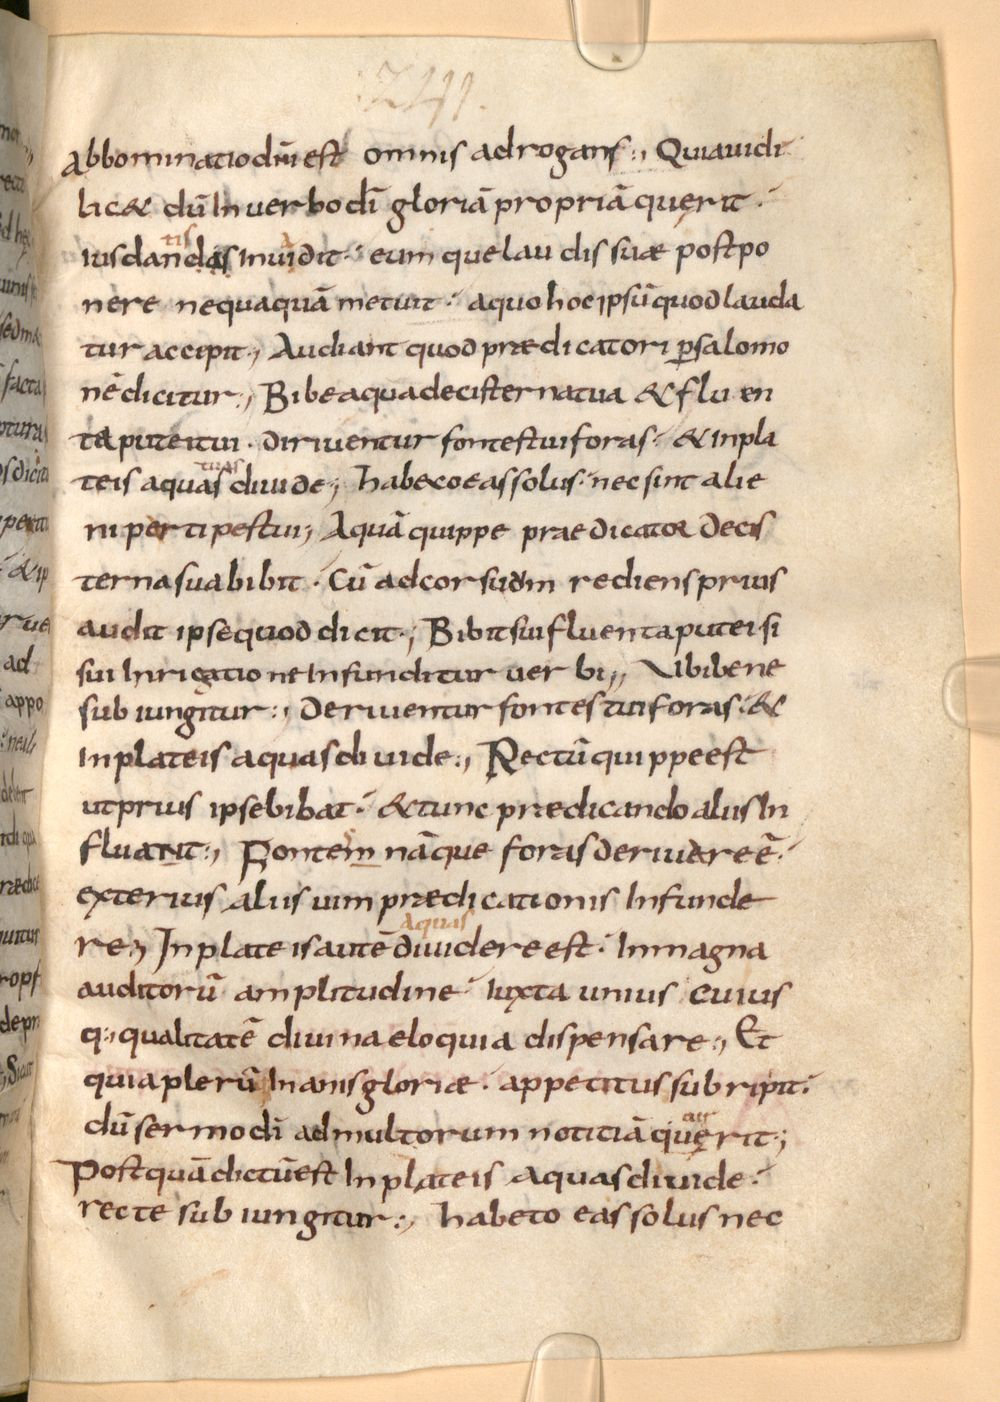 Abbominatio dñi est omnis adrogans:, Quia uidi
licet dū In uerbo dī gloriā propriā querit ·
tis
iusdandas inuidit · eum que laudis suæ postpo
nere nequaquā metuit · aquo hoc ipsū quod lauda
tur accipit ·, Audiant quod prædicatori p salomo
nē dicitur:, Bibe aqua de cisterna tua & fluen
ta putei tui · diriuentur fontes tui foras · & inpla
tuas
teis aquas diuide ·, habeto eas solus · nec sint alie
ni pertipes tui ·, Aquā quippe praedicator decis
terna sua bibit · Cū ad cor suum rediens prius
audit ipse quod dicit ·, Bibit sui fluenta putei si
sui Inrigatione Infunditur uerbi ·, Vbi bene
subiungitur:, deriuentur fontes tui foras · &
Inplateis aquas diuide:, Rectū quippe est
ut prius ipse bibat · & tunc prædicando alus In
fluat:, Fontem nāque foras deriuare ē ·
exterius alus uim prædicationis Infunde
Aquas
re ·, In plateis autē diuidere est · In magna
auditorū amplitudine · Iuxta unius cuius
q:, qualitatē diuina eloquia dispensare:, Et
quia plerū Inanis gloriæ · appetitus subripit ·
dū sermo dī ad multorum notitiā querit ·,
Postquā dictū est Inplateis aquas diuide ·
recte subiungitur:, habeto eas solus nec